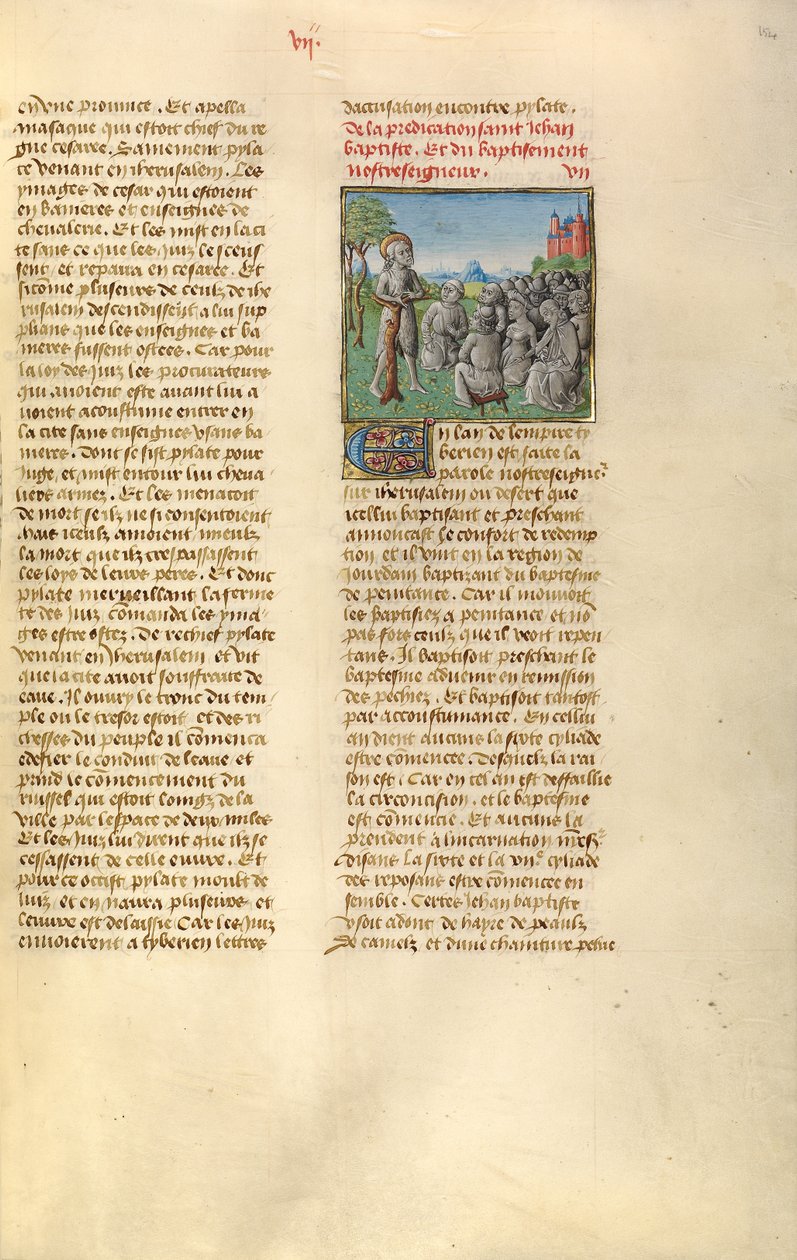 vii.
154
en vne prouince . Et apella
masaque qui estoit chief du re
gne cesaree . Sainement pyla
te venant en iherusalem . Les
ymages de cesar qui estoient
en banieres et enseignes de
cheualerie . Et les mist en la ci
te sans ce que les Juiz le sceus
sent , et repaira en cesaree . Et
sicōme pluseurs de ceulz de ihe
rusalem descendissent a lui sup
plians que les enseignes et ba
nieres fussent ostees . Car pour
la loy des Juiz les procurateurs
qui auoient este auant lui a
uoient acoustume entrer en
la cite sans enseignes , sans ba
nieres . Dont se sist pylate pour
Juge , et mist entour lui cheua
liers armez . Et les menacoit
de mort se ilz ne si consentoient
Mais iceulz amoient mieulz
la mort que ilz trespassassent
les loys de leurs peres . Et donc
pylate merueillant la ferme
te des Juiz , cōmanda les yma
ges estre ostez . De rechief pylate
venant en Jherusalem et vit
que la cite auoit souffraite de
eaue . Il ouury le tronc du tem
ple ou le tresor estoit et des ri
chesses du peuple il cōmenca
edefier le conduit de leaue et
prind le cōmencement du
ruissel qui estoit loingz de la
ville par lespace de deux miles
Et les Juiz lui dirent que ilz se
cessassent de celle euure . Et
pour ce occist pylate moult de
Juiz , et en naura pluseurs et
leuure est delaissie Car les Juiz
enuoierent a tyberien lettres
daccusation encontre pylate .
De la predication saint Jehan
baptiste . Et du baptisement
nostreseigneur . vii
En lan de lempire ty
berien est faite la
parole nostreseigneur
sur iherusalem ou desert que
icellui baptisant et preschant
annoncast le confort de redemp
tion et il vint en la region de
Jourdain baptizant du baptesme
de penitance . Car il mouuoit
les baptisiez a penitance et nō
pas fors ceulz que il veoit repen
tans . Il baptisoit preschant le
baptesme aduenir en remission
des pechiez . Et baptisoit tantost
par accoustumance . En cellui
an dient aucuns la sixte cyliade
estre cōmence . Desquelz la rai
son est . Car en cel an est deffaillie
la circoncision . et le baptesme
est cōmencie . Et aucuns la
prendent a lincarnation nr̄es.
disans la sixte et la viie cyliade
des reposans estre cōmencee en
semble . Certes Jehan baptiste
vsoit adont de hayre de peaulz
de camelz et dune chainture pelue